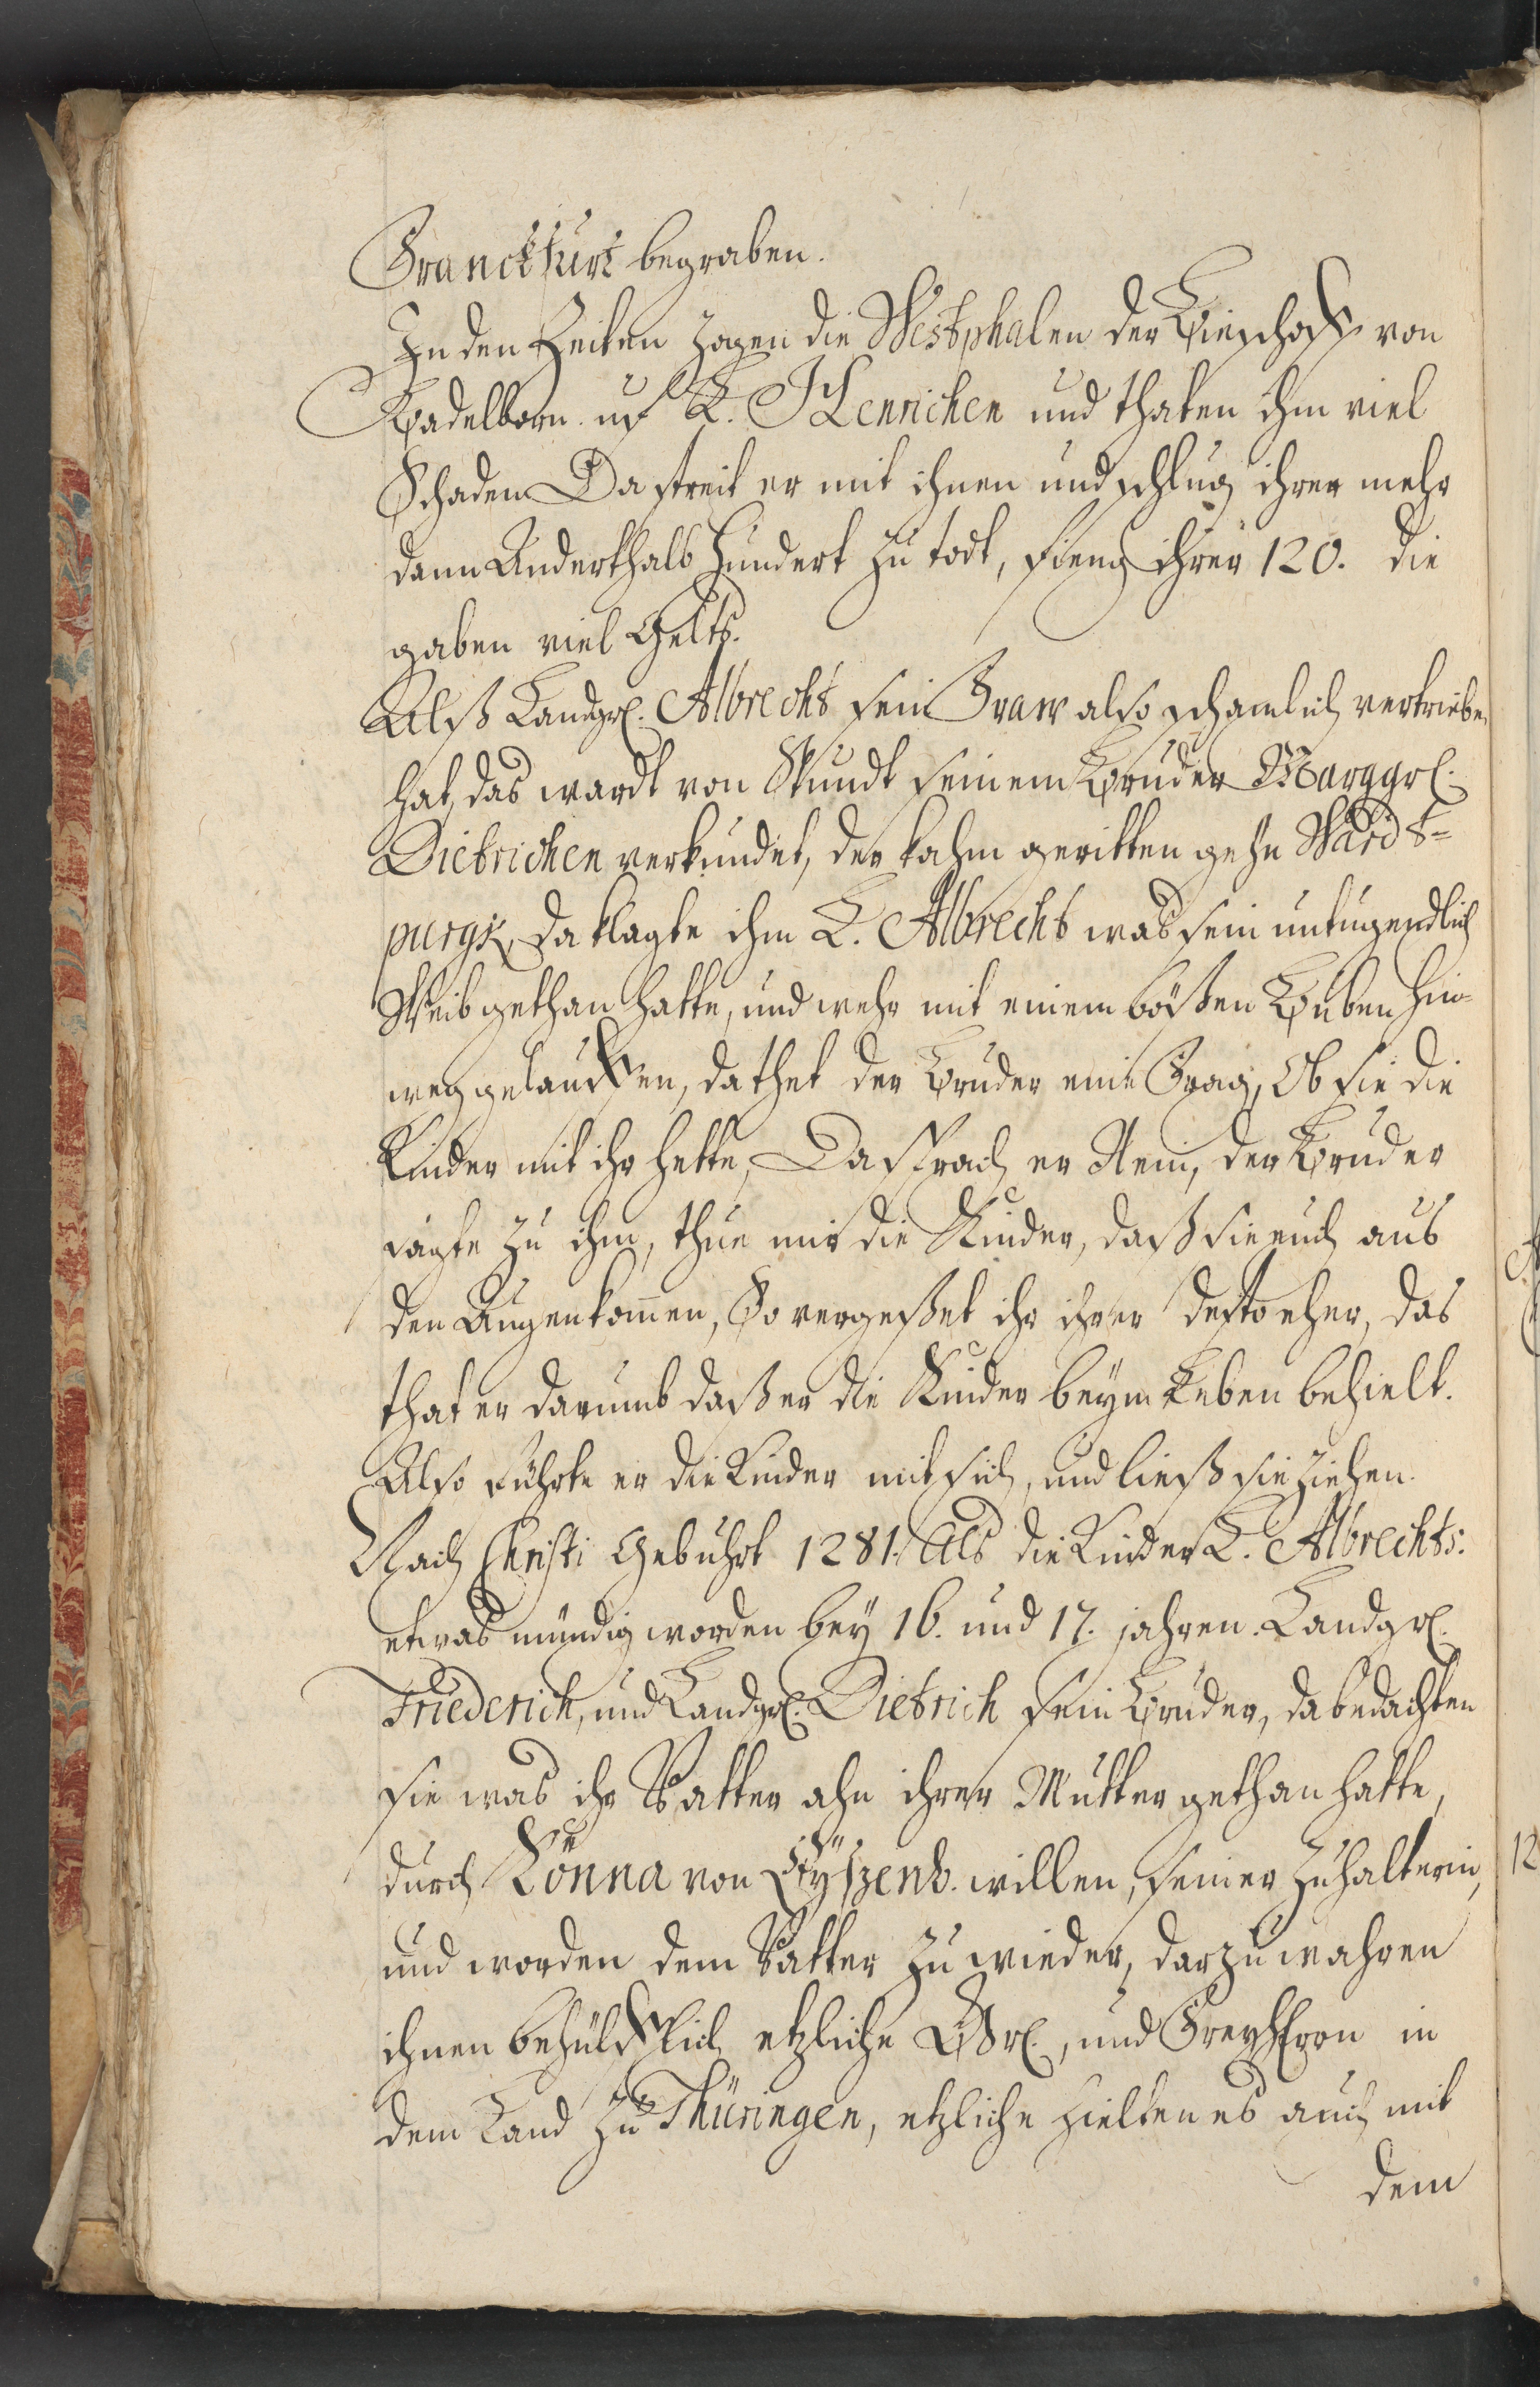 Franckfurt begraben.
In den Zeiten zogen die Westphalen der Bieschoff von
Padelborn uf L. Henrichen und thaten ihm viel
Schaden Da streit er mit ihnen und schlug ihrer mehr
dann Anderthalb hundert zu todt, fieng ihrer 120. die
gaben viel Gelts.
Alß Landgr. Albrecht sein Fraw also schamlich vertrieben
hat, das wardt von Stundt seinem Bruder Marggr.
Dietrichen verkundet, der kahm geritten gehn Wardt=
purgk, da klagte ihm L. Albrecht was sein untugendlich
Weib gethan hatte, und wehr mit einem bößen Buben hin=
weg gelauffen, da thet der Bruder eine Frag, Ob sie die
Kinder mit ihr hette, Da sprach er Nein, der Bruder
sagte zu ihm, thue mir die Kinder, daß sie euch aus
den Augen kom̅en, So vergeßet ihr ihrer desto eher, das
that er darumb daß er die Kinder beym Leben behielt.
Also führte er die Kinder mit sich, und ließ sie ziehen.
Nach Christi Gebuhrt 1281. Als die Kinder L. Albrechts:
etwas mündig worden bey 16. und 17. jahren. Landgr.
Friederich, und Landgr. Dietrich sein Bruder, da bedachten
sie was ihr Vatter ahn ihrer Mutter gethan hatte,
durch Könna von Eyszenb. willen, seiner Zuhalterin,
und worden dem Vatter zu wieder, darzu wahren
ihnen behülfflich etzliche Gr., und Freyherrn in
dem Land zu Thüringen, etzliche hielten es auch mit
dem
12